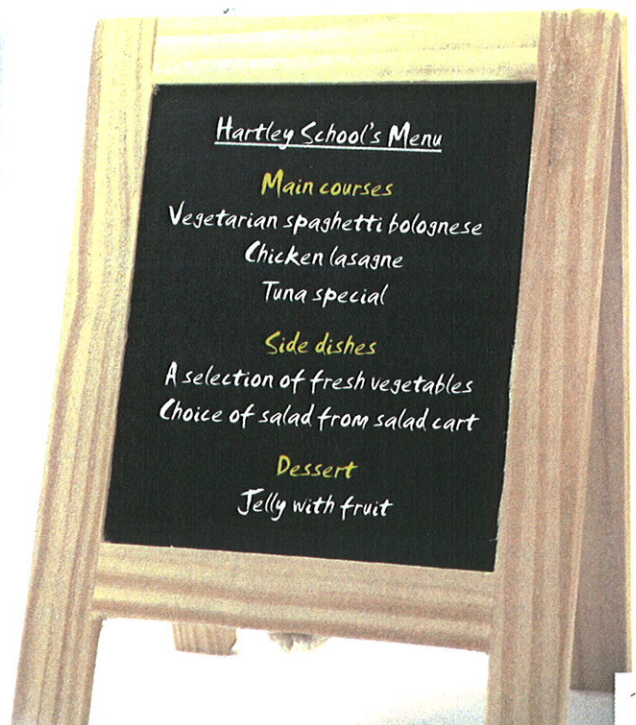 Hartley School's Menu
Main courses
Vegetarian spaghetti bolognese
Chicken lasagne
Tuna special
Side dishes
A selection of fresh vegetables
Choice of salad from salad cart
Dessert
Jelly with fruit